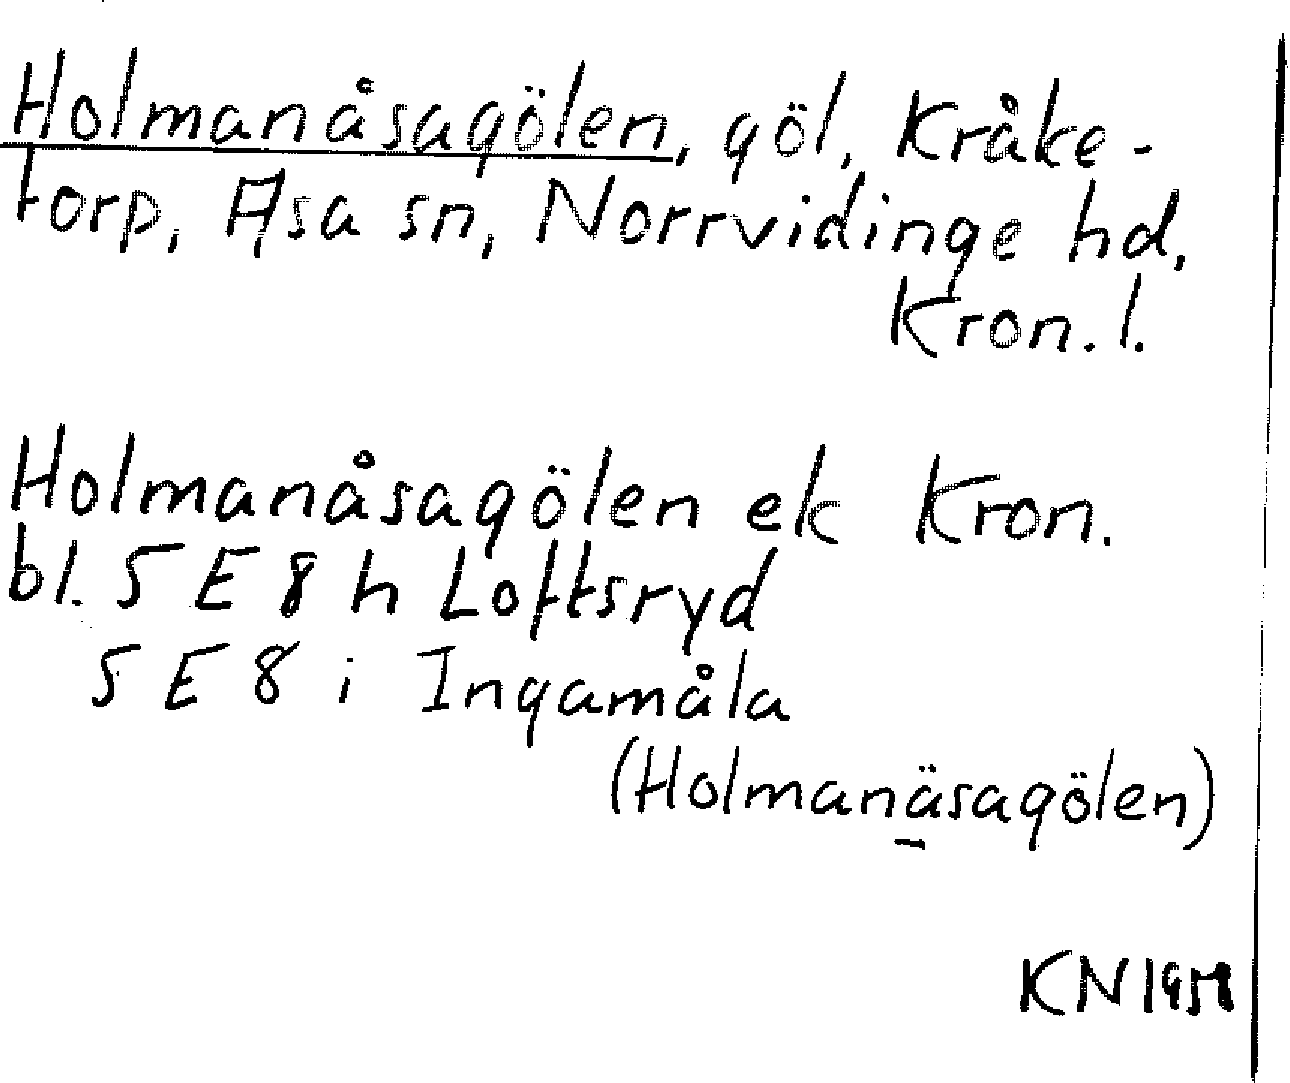 Holmanåsagölen, göl, Kråke-
torp, Asa sn, Norrvidinge hd,
Kron. l.
Holmanåsagölen ek Kron.
bl. 5 E 8 h Loftsryd
5 E 8 i Ingamåla
(Holmanäsagölen)
KN